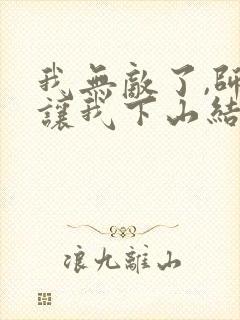 我無敵了,師
讓我下山結
浪九離山